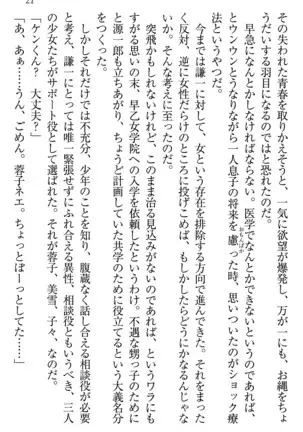 21
その失われた青春を取りかえそうと、一気に欲望が爆発し、万が一にも、お縄をちょ
うだいする羽目になるのではと恐れたのだ。
早急になんとかしなければならない。医学でなんとかできないのであれば、それは
とウンウンとうなりながら一人息子の将来を慮った時、思いついたのがショック療
おもんぱか
法というやつだ。
今まで謙一に対して、女という存在を排除する方向で進んできた。それではなく、ま
く反対、逆に女性だらけのところに投げこめば、もしかしたらどうにかなるんじゃな
いか。そんな考えに至ったのだ。
突飛かもしれないけれど、このまま治る見込みがないのであれば、というワラにも
すがる思いの末、早乙女学院への入学を依頼したというわけ。不遇な甥っ子のために
と源一郎も立ちあがり、ちょうど計画していた共学のために役立てるという大義名分
をつくった。
しかしそれだけでは不充分、少年のことを知り、腹蔵なく話し合える相談役が必要
と考え、謙一にとっては唯一緊張せずにふれ合える異性、相談役ともいうべき、三人
の少女たちがサポート役として選ばれた。それが蓉子、美雪、子々、なのだ。
「ケンくん？　大丈夫？」
「あ、あぁ……うん、ごめん。蓉子ネエ。ちょっとぼーっとしてた……」